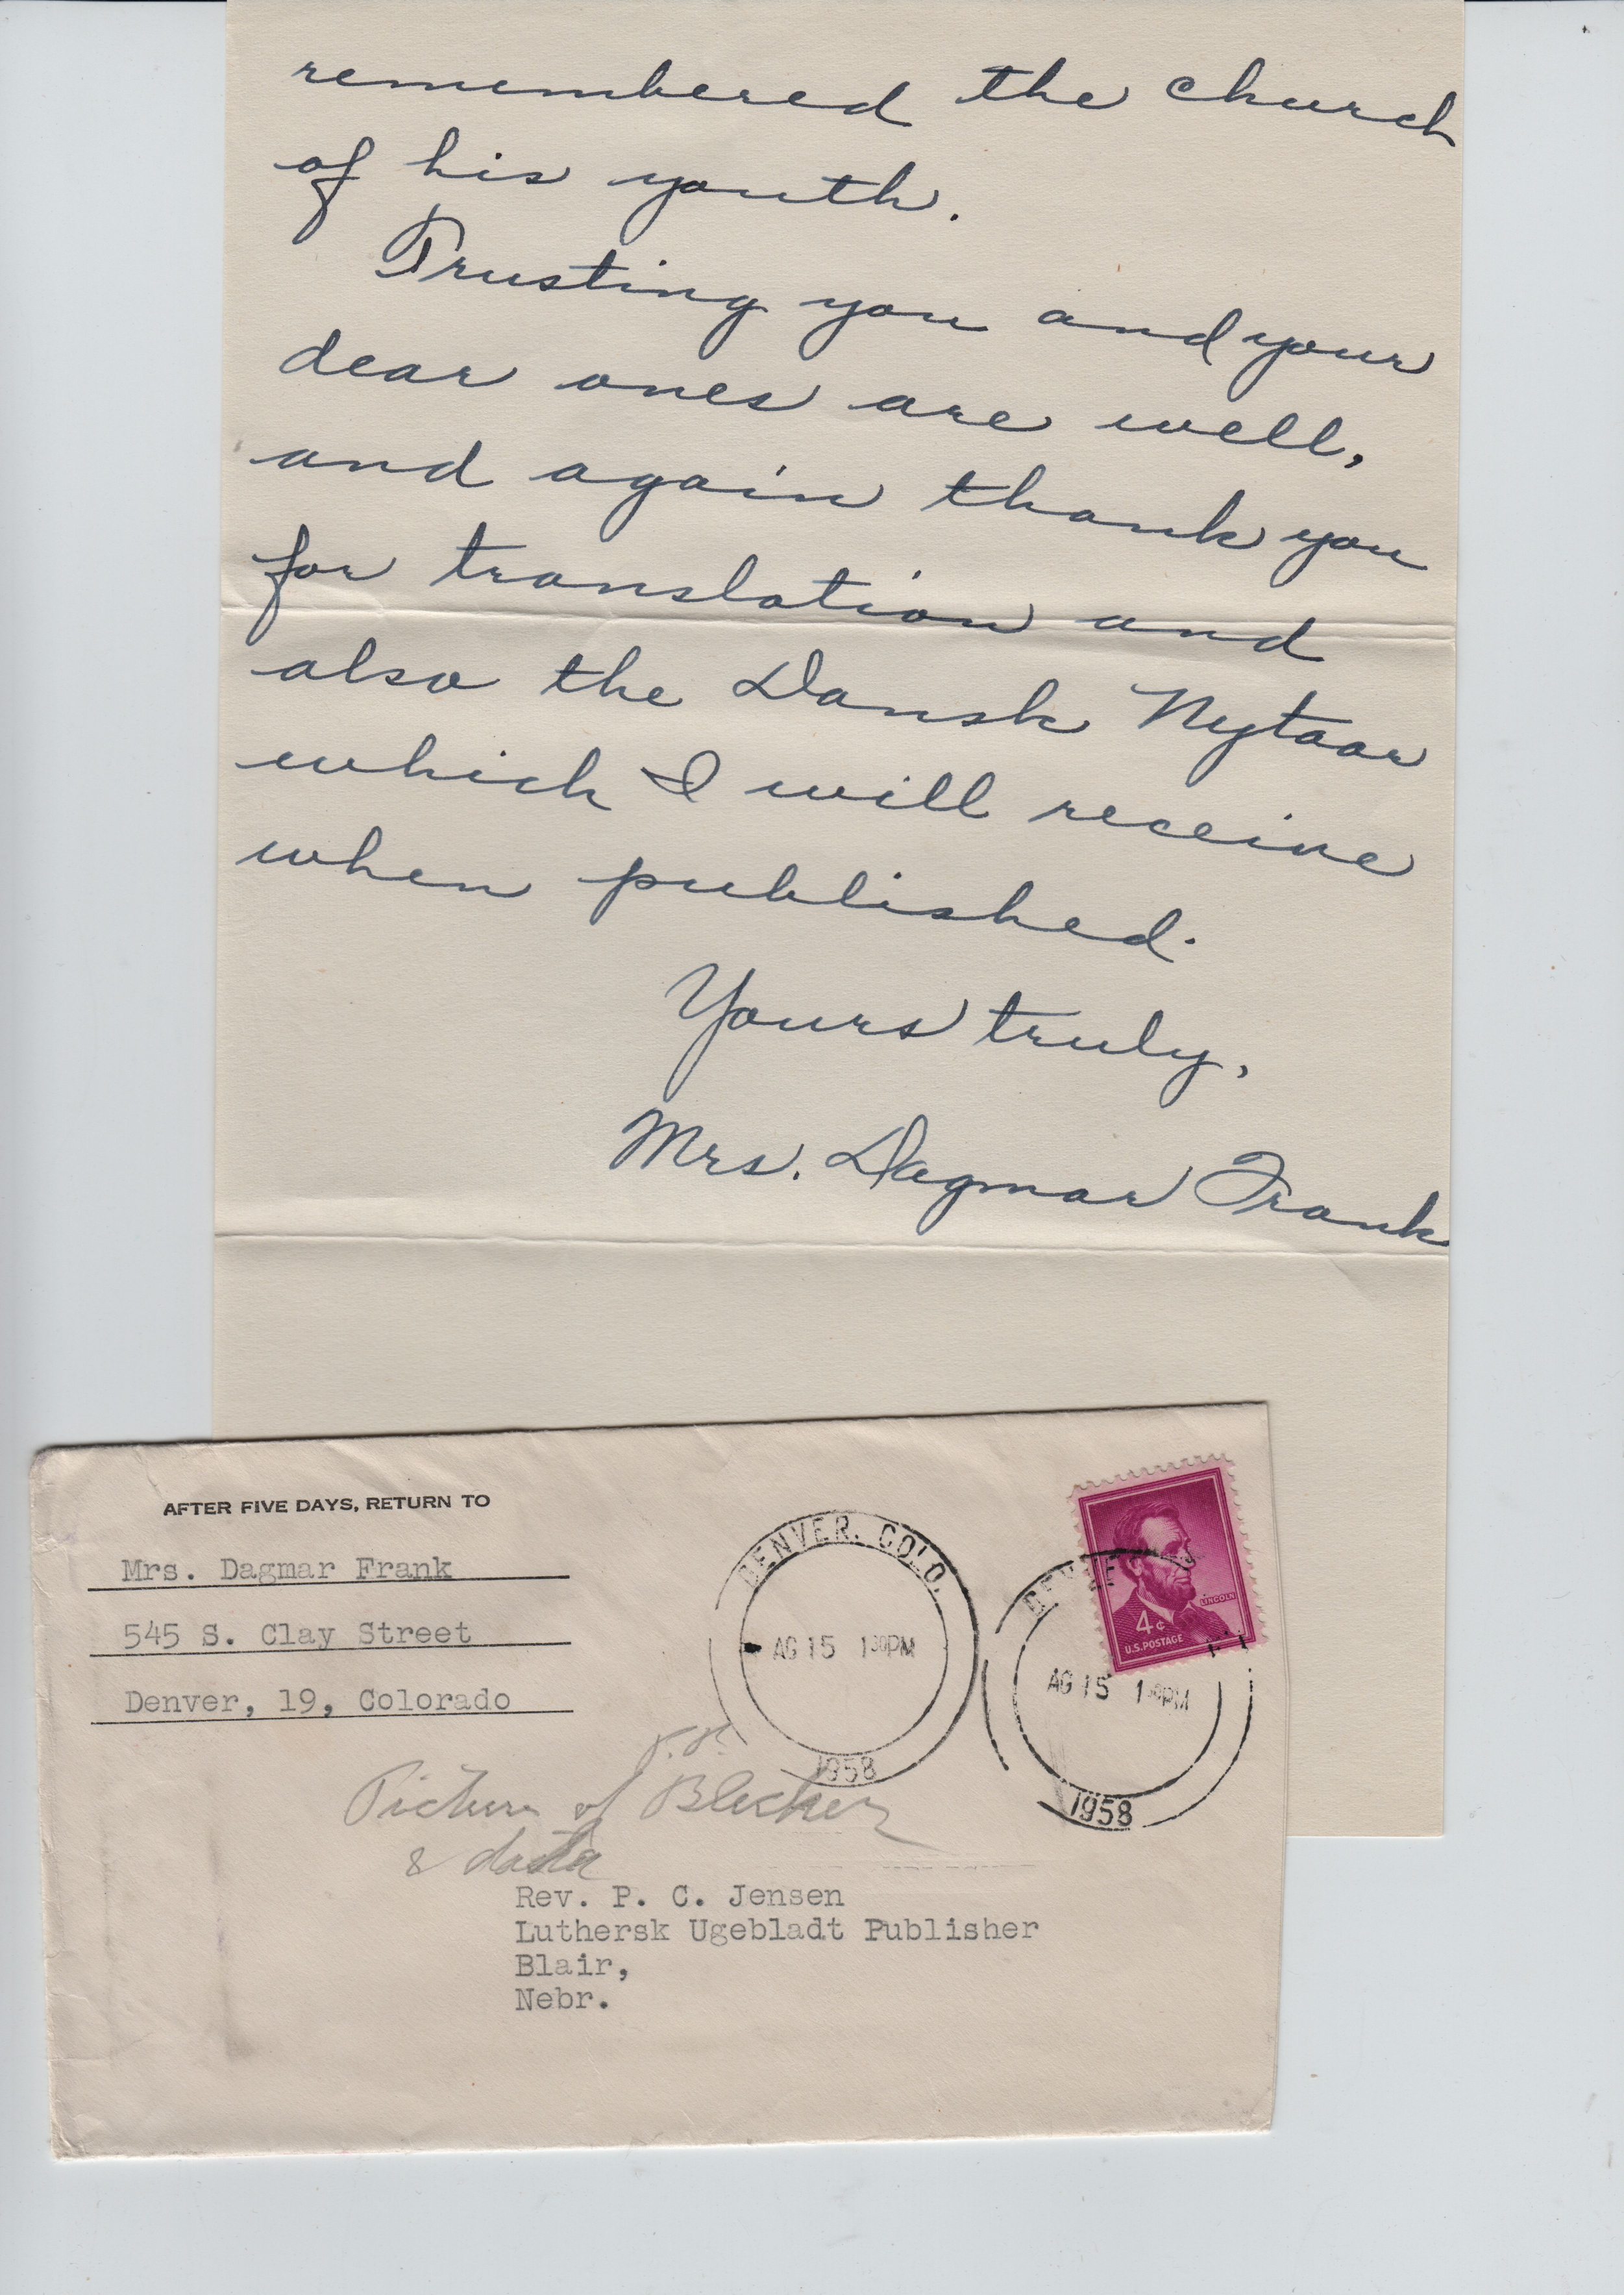 remembered the church
of his youth.
Trusting you and your
dear ones are well,
and again thank you
for translation and
also the Dansk Nytaar
which I will receive
when published.
Yours truly,
Mrs. Dagmar Frank
AFTER FIVE DAYS, RETURN TO
Mrs. Dagmar Frank
545 S. Clay Street
Denver, 19, Colorado
DENVER, COLO.
AG 15 1 30 PM
1958
DENVER
AG 15 1 30 PM
1958
LINCOLN
4¢
U.S. POSTAGE
Picture of
& data
Rev. P. C. Jensen
Luthersk Ugebladt Publisher
Blair,
Nebr.